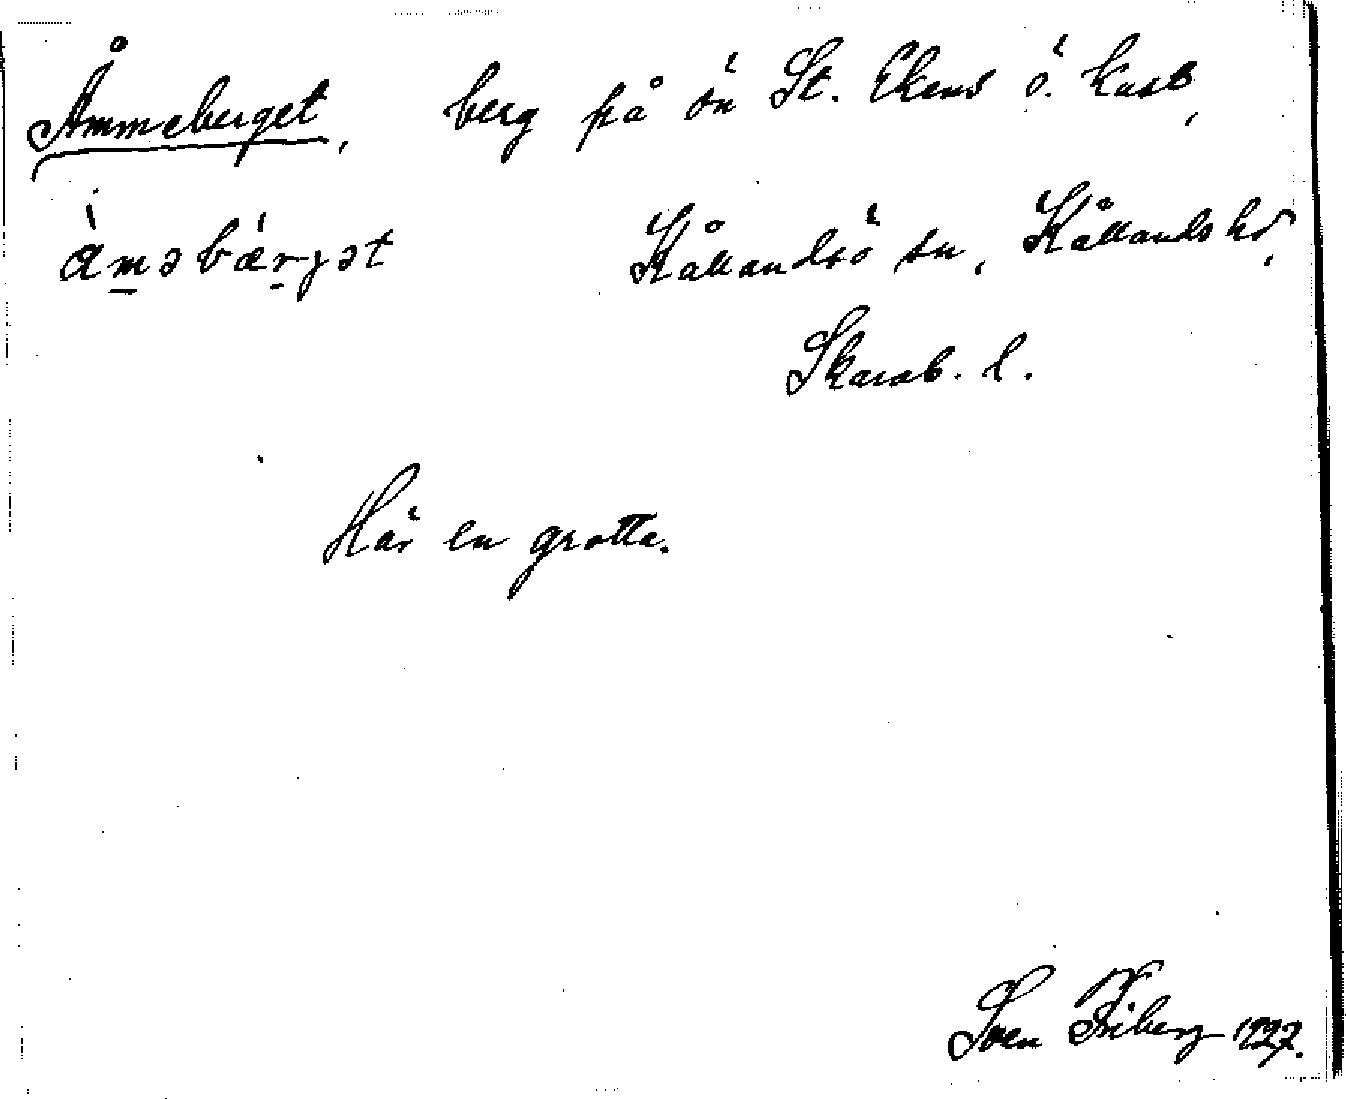 Åmmeberget, berg på ön St. Ekens ö. kust,
àm̲əbær̲jət Kållandsö sn, Kållands hd,
Skarab. l.
Här en grotta.
Sven Friberg 1927.